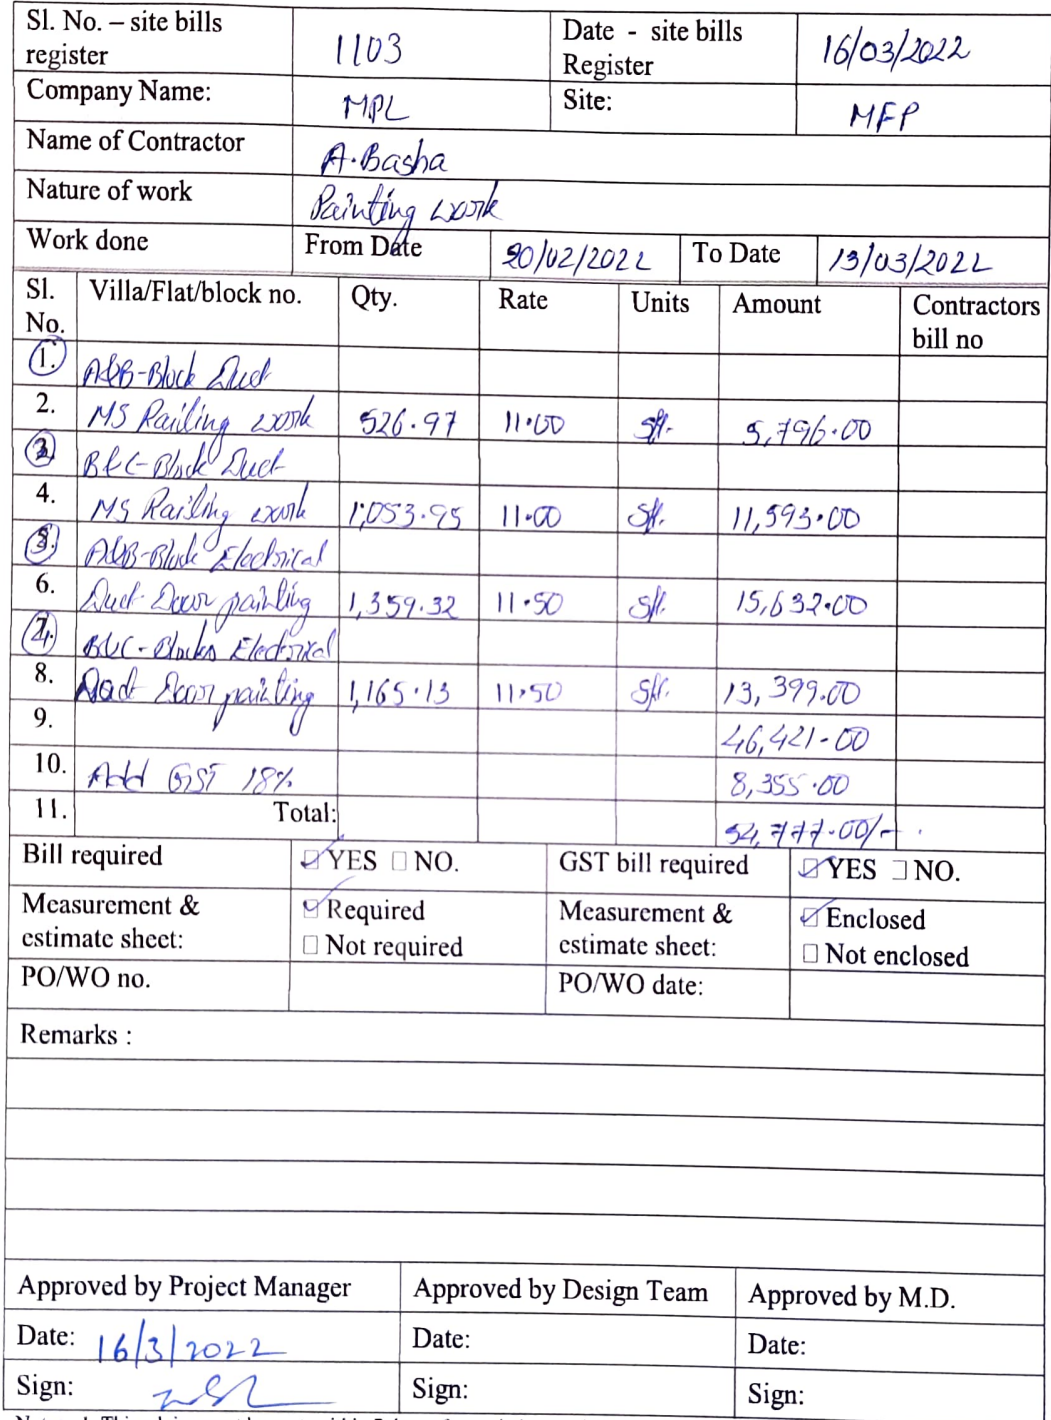 Sl. No. – site bills register 1103 Date - site bills Register 16/03/2022
Company Name: MPL Site: MFP
Name of Contractor A.Basha
Nature of work Painting work
Work done From Date 20/02/2022 To Date 13/03/2022
Sl. No. Villa/Flat/block no. Qty. Rate Units Amount Contractors bill no
1. A&B-Block Duct
2. MS Railing work 526.97 11.00 Sft. 5,796.00
3. B&C-Block Duct
4. MS Railing work 1,053.95 11.00 Sft. 11,593.00
5. A&B-Block Electrical
6. Duct Door painting 1,359.32 11.50 Sft. 15,632.00
7. B&C-Blocks Electrical
8. Duct Door painting 1,165.13 11.50 Sft. 13,399.00
9. 46,421-00
10. Add GST 18% 8,355.00
11. Total: 54,777.00/-
Bill required YES NO. GST bill required YES NO.
Measurement & estimate sheet: Required Not required Measurement & estimate sheet: Enclosed Not enclosed
PO/WO no. PO/WO date:
Remarks :
Approved by Project Manager Approved by Design Team Approved by M.D.
Date: 16/3/2022 Date: Date:
Sign: Sign: Sign: